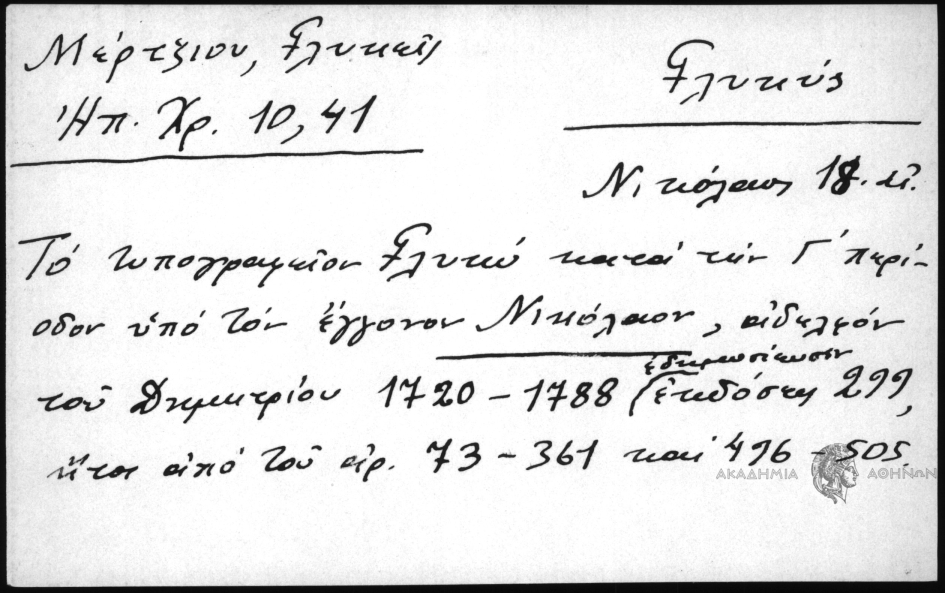 Μέρτζιου, Γλυκεῖς
Ἠπ. Χρ. 10, 41
Γλυκύς
Νικόλαος 18. αἰ.
Τό τυπογραφεῖον Γλυκύ κατά τήν Γ΄ περί-
οδον ὑπό τόν ἔγγονον Νικόλαον, ἀδελφόν
τοῦ Δημητρίου 1720 - 1788 ἐδημοσίευσεν
(ἐκδόσεις 299,
ἤτοι ἀπό τοῦ ἀρ. 73 - 361 καί 496 - 505.
ΑΚΑΔΗΜΙΑ ΑΘΗΝΩΝ